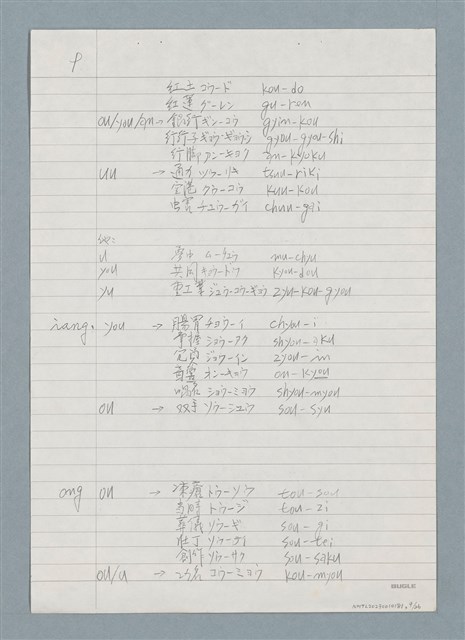 9
紅土 コウード kou-do
紅蓮 グーレン gu-ren
ou/you/an→ 銀行 ギンーコウ gyin-kou
行行子 ギョウーギョウシ gyou-gyou-shi
行脚 アンーキャク an-kyaku
uu → 通力 ツウーリキ tsuu-riki
空港 クウーコウ kuu-kou
虫害 チュウーガイ chuu-gai
u 夢中 ムーチュウ mu-chyu
you 共同 キョウートウ kyou-dou
yu 重工業 ジュウーコウーギョウ zyu-kou-gyou
iang, you → 腸胃 チョウーイ chyou-i
掌握 ショウーアク shyou-aku
冗員 ジョウーイン zyou-in
音響 オンーキョウ on-kyou
唱名 ショウーミョウ shyou-myou
ou → 双手 ソウーシュウ sou-syu
ong ou → 凍瘡 トウーソウ tou-sou
当時 トウージ tou-zi
葬儀 ソウーギ sou-gi
壮丁 ソウーテイ sou-tei
創作 ソウーサク sou-saku
ou/u → 功名 コウーミョウ kou-myou
BUGLE